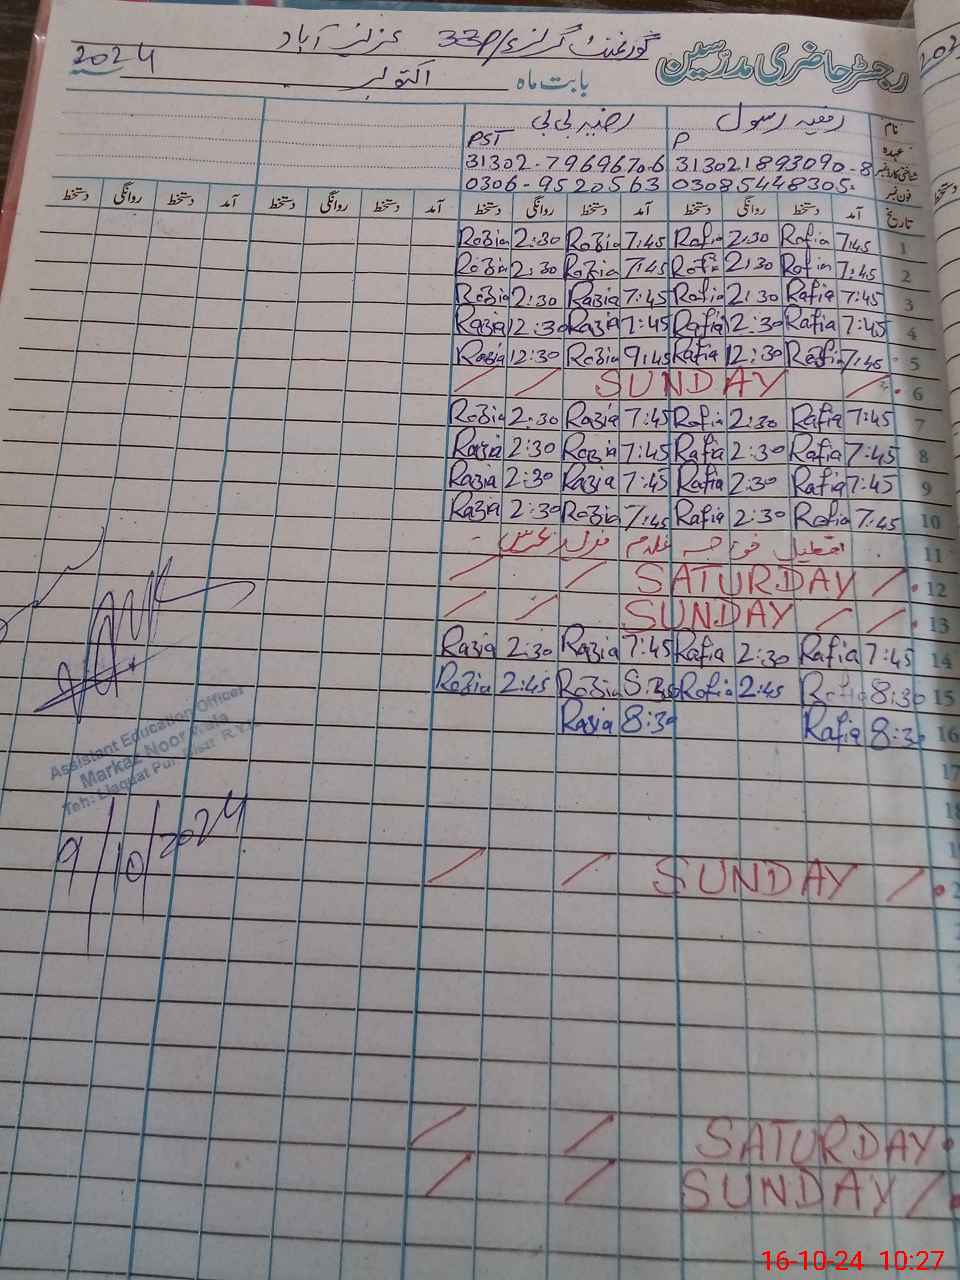 رجسٹر حاضری مدرسین گورنمنٹ گرلز 33P/ عزیز آباد
بابت ماہ اکتوبر 2024
نام رفعیہ رسول رضیہ بی بی
عہدہ P PST
شناختی کارڈ نمبر 313021893090-8 31302-7969670-6
فون نمبر 03085448305 0306-9520563
تاریخ آمد دستخط روانگی دستخط آمد دستخط روانگی دستخط آمد دستخط روانگی دستخط آمد دستخط روانگی دستخط
1 7:45 Rafia 2:30 Rafia 7:45 Razia 2:30 Razia
2 7:45 Rafia 2:30 Rafia 7:45 Razia 2:30 Razia
3 7:45 Rafia 2:30 Rafia 7:45 Razia 2:30 Razia
4 7:45 Rafia 12:30 Rafia 7:45 Razia 12:30 Razia
5 7:45 Rafia 12:30 Rafia 9:45 Razia 12:30 Razia
6 SUNDAY
7 7:45 Rafia 2:30 Rafia 7:45 Razia 2:30 Razia
8 7:45 Rafia 2:30 Rafia 7:45 Razia 2:30 Razia
9 7:45 Rafia 2:30 Rafia 7:45 Razia 2:30 Razia
10 7:45 Rafia 2:30 Rafia 7:45 Razia 2:30 Razia
11 غلام فرید عرس
12 SATURDAY
13 SUNDAY
14 7:45 Rafia 2:30 Rafia 7:45 Razia 2:30 Razia
15 8:30 Rafia 2:45 Rafia 8:30 Razia 2:45 Razia
16 8:30 Rafia 8:30 Razia
17
18
SUNDAY
SATURDAY
SUNDAY
Assistant Education Officer
Markaz Noor Wala
Teh: Liaquat Pur, Disst R.Y.
9/10/2024
16-10-24 10:27